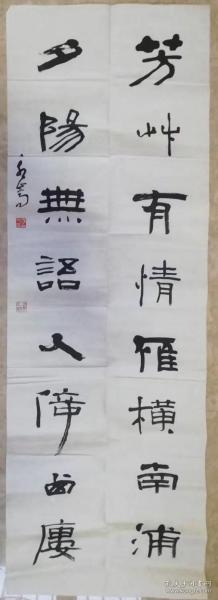 芳艸有情雁橫南浦
夕陽無語人倚西廔